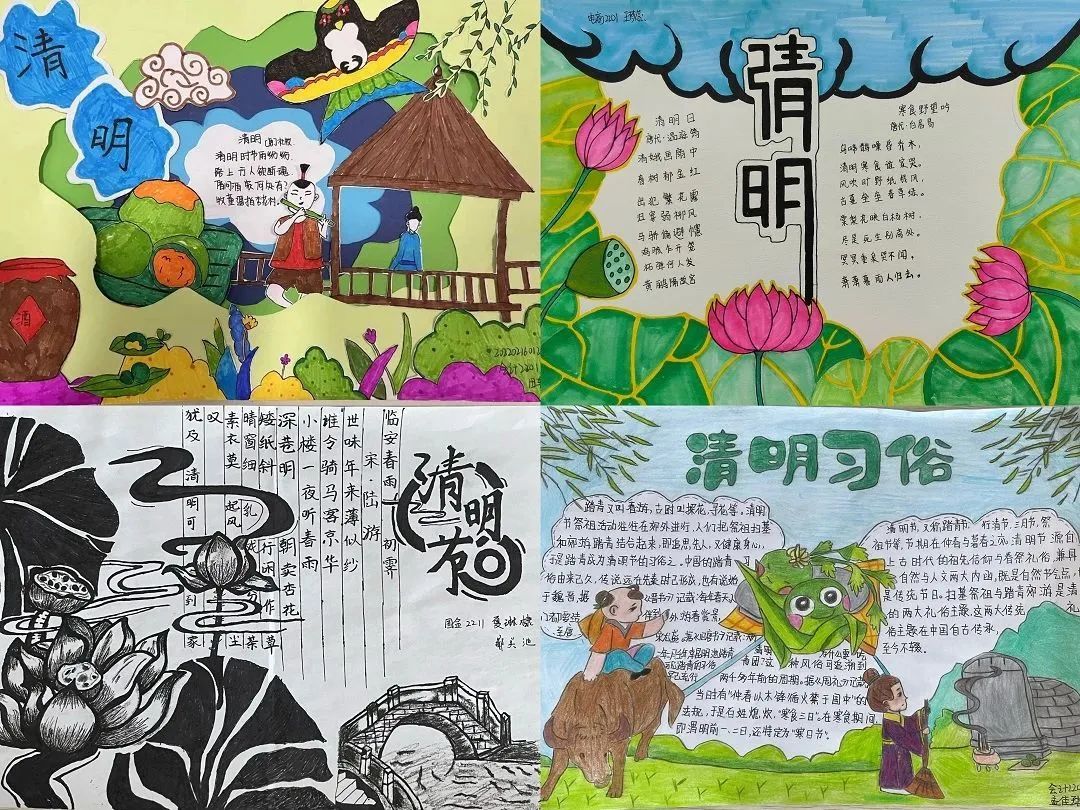 清
明
清明 [唐]杜牧
清明时节雨纷纷,
路上行人欲断魂。
借问酒家何处有?
牧童遥指杏花村。
酒
电商2201
清明
清明日
唐代·温庭筠
清娥画扇中
春树郁金红
出犯繁花露
归穿弱柳风
马骄偏避幰
鸡骇乍开笼
柘弹何人发
黄鹂隔故宫
寒食野望吟
唐代·白居易
乌啼鹊噪昏乔木,
清明寒食谁家哭。
风吹旷野纸钱飞,
古墓垒垒春草绿。
棠梨花映白杨树,
尽是死生别离处。
冥冥重泉哭不闻,
萧萧暮雨人归去。
清明节
临安春雨初霁
宋·陆游
世味年来薄似纱
谁令骑马客京华
小楼一夜听春雨
深巷明朝卖杏花
矮纸斜行闲作草
晴窗细乳戏分茶
素衣莫起风尘叹
犹及清明可到家
清明习俗
踏青又叫春游,古时叫探春、寻春等,清明
节祭祖活动往往在郊外进行,人们把祭祖扫墓
和郊游踏青结合起来,即追思先人,又健康身心,
于是踏青成为清明节的习俗之一。中国的踏青习
俗由来已久,传说远在先秦时已形成,也有说始
两千多年前的周期。据《周礼》记载
当时有"仲春以木铎循火禁于国中"的
法规,于是百姓熄炊,"寒食三日"。在寒食期间,
即清明前一、二日,还特定为"寒日节"。
清明节,又称踏青节、行清节、三月节、祭
祖节等,节期在仲春与暮春之交。清明节源自
上古时代的祖先信仰与春祭礼俗,兼具
自然与人文两大内涵,既是自然节气点,也
是传统节日。扫墓祭祖与踏青郊游是清
的两大礼俗主题,这两大传统礼
俗主题在中国自古传承,
至今不辍。